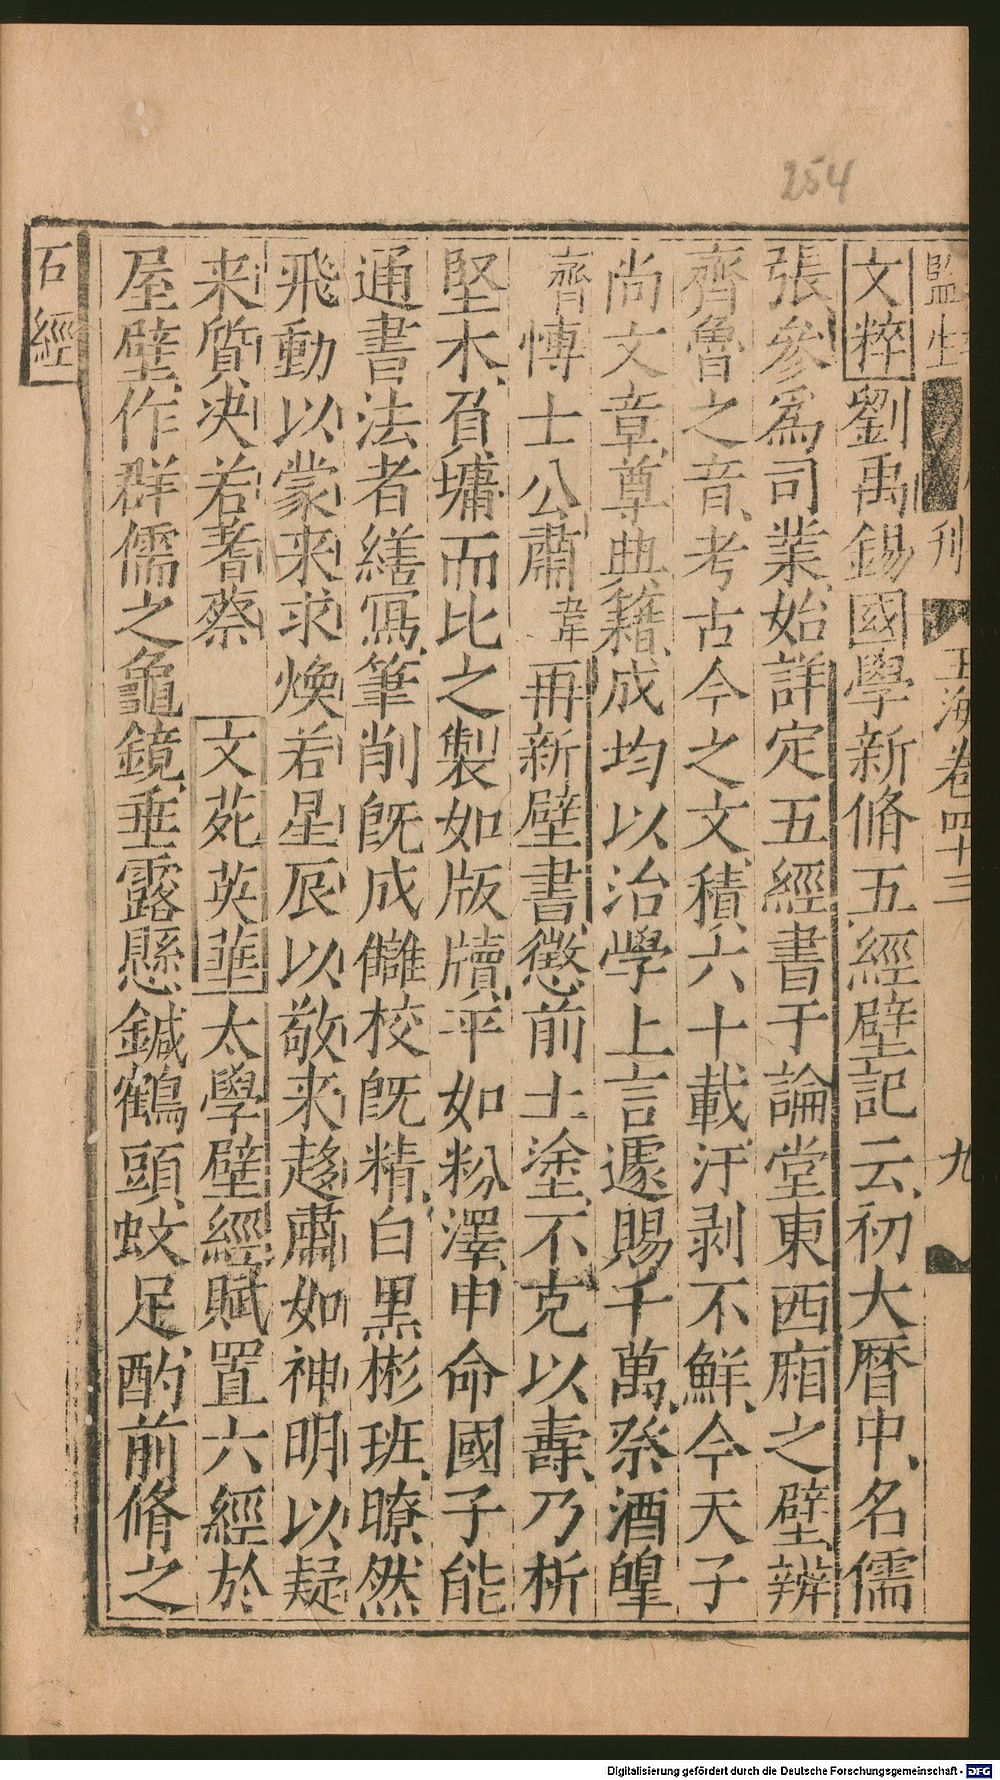 254
監生
刊
玉海卷四十三
九
文粹劉禹錫國學新脩五經壁記云初大曆中名儒
張參爲司業始詳定五經書于論堂東西廂之壁辨
齊魯之音考古今之文積六十載汙剥不鮮今天子
尚文章尊典籍成均以治學上言遽賜千萬祭酒皥
齊博士公肅韋再新壁書懲前土塗不克以壽乃析
堅木負墉而比之製如版牘平如粉澤申命國子能
通書法者繕寫筆削旣成讎校旣精白黑彬班瞭然
飛動以蒙来求煥若星辰以敬来趍肅如神明以疑
来質决若蓍蔡 文苑英華太學壁經賦置六經於
屋壁作群儒之龜鏡垂露懸鍼鶴頭蚊足酌前脩之
石經
Digitalisierung gefördert durch die Deutsche Forschungsgemeinschaft - DFG